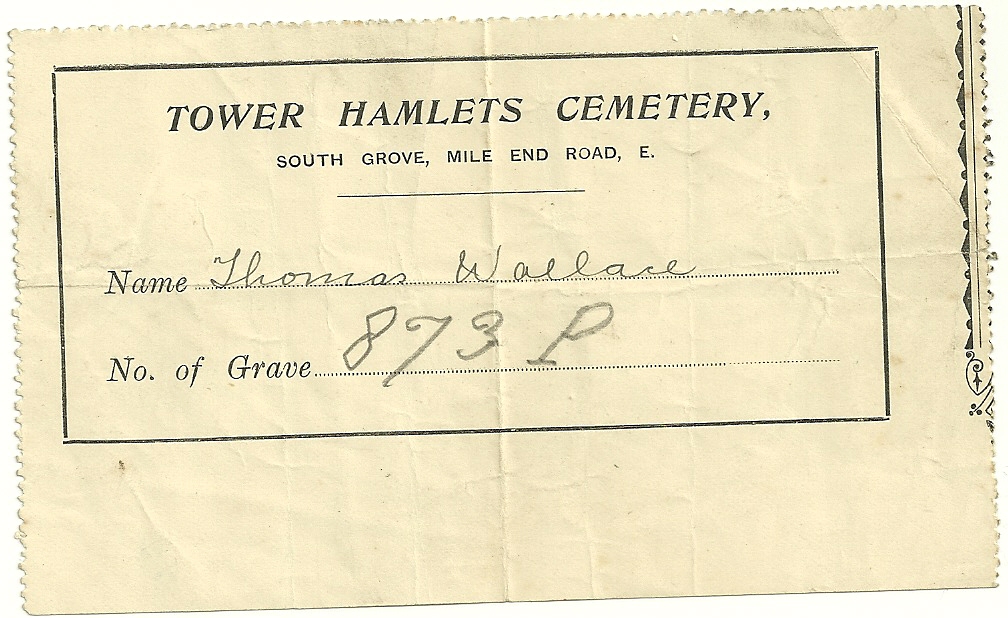 TOWER HAMLETS CEMETERY,
SOUTH GROVE, MILE END ROAD, E.
Name Thomas Wallace
No. of Grave 873 P